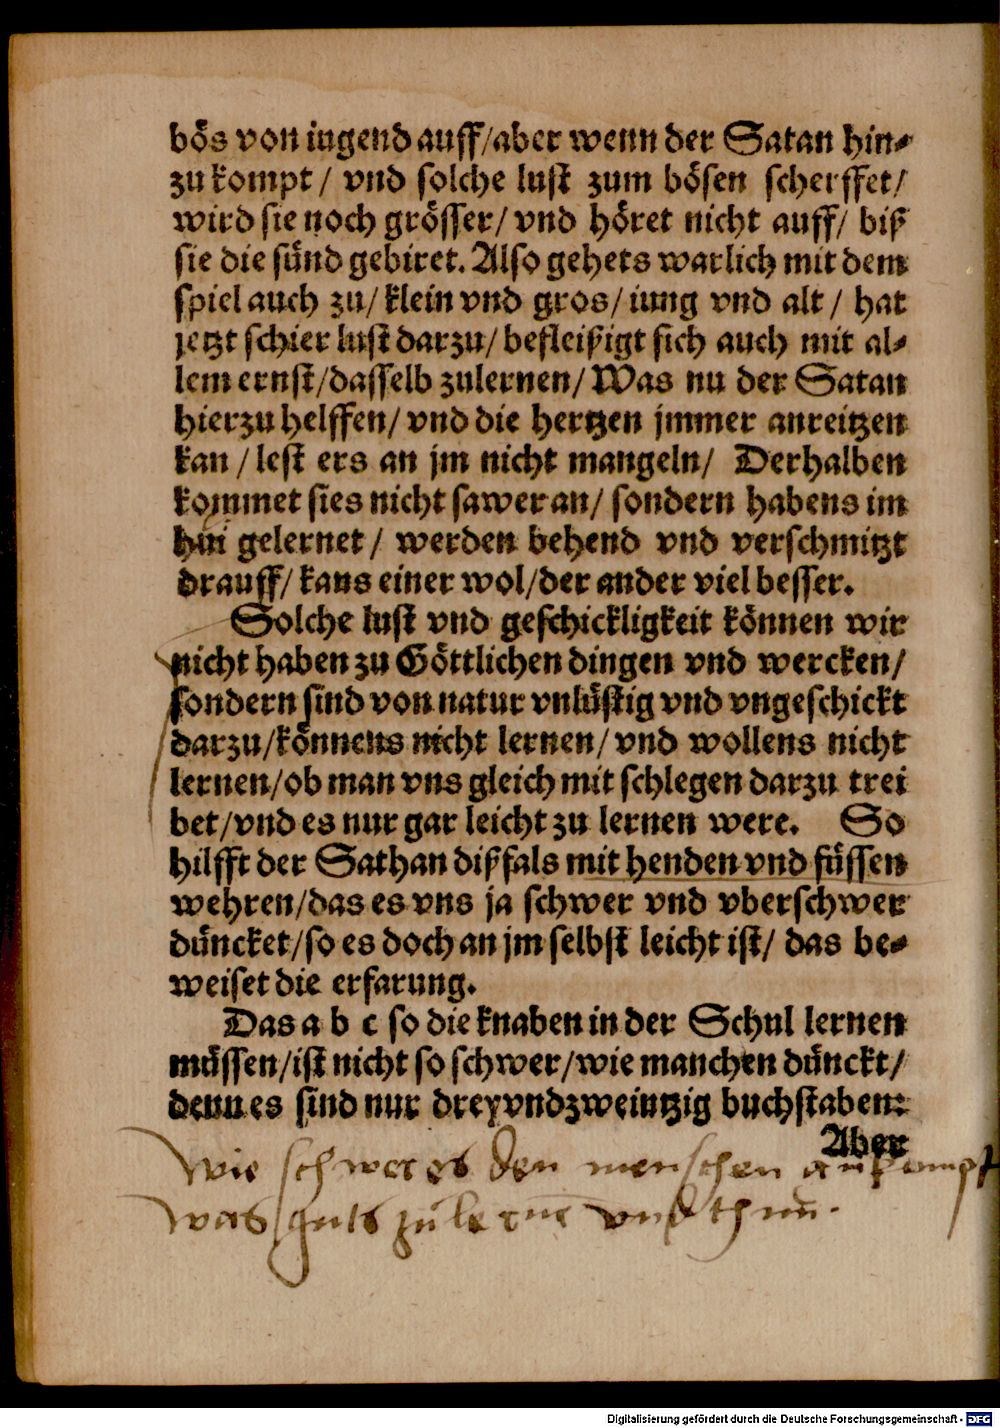 bös von iugend auff/aber wenn der Satan hin-
zu kompt / vnd solche lust zum bösen scherffet/
wird sie noch grösser/ vnd höret nicht auff/ biß
sie die sünd gebiret. Also gehets warlich mit dem
spiel auch zu/ klein vnd gros/ iung vnd alt / hat
jetzt schier lust darzu/ befleißigt sich auch mit al-
lem ernst/dasselb zulernen/ Was nu der Satan
hierzu helffen/ vnd die hertzen jmmer anreitzen
kan / lest ers an jm nicht mangeln/ Derhalben
kommet sies nicht sawer an/ sondern habens im
hui gelernet / werden behend vnd verschmitzt
drauff/ kans einer wol/der ander viel besser.
Solche lust vnd geschickligkeit können wir
nicht haben zu Göttlichen dingen vnd wercken/
sondern sind von natur vnlüstig vnd vngeschickt
darzu/können​s nicht lernen/ vnd wollens nicht
lernen/ob man vns gleich mit schlegen darzu trei
bet/vnd es nur gar leicht zu lernen were. So
hilfft der Sathan dißfals mit henden vnd füssen
wehren/das es vns ja schwer vnd vberschwer
düncket/so es doch an jm selbst leicht ist/ das be-
weiset die erfarung.
Das a b c so die knaben in der Schul lernen
müssen/ist nicht so schwer/wie manchen dünckt/
denn es sind nur drey vnd zweintzig buchstaben:
Aber
Wie schwer es den menschen ankompt
was guts zu lerne vnd thun.
Digitalisierung gefördert durch die Deutsche Forschungsgemeinschaft - DFG